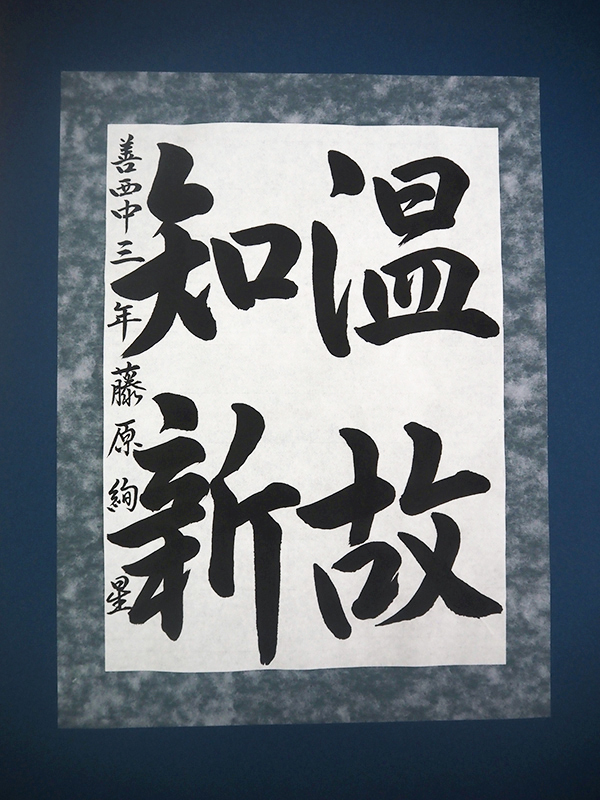 温故
知新
善西中三年藤原絢星